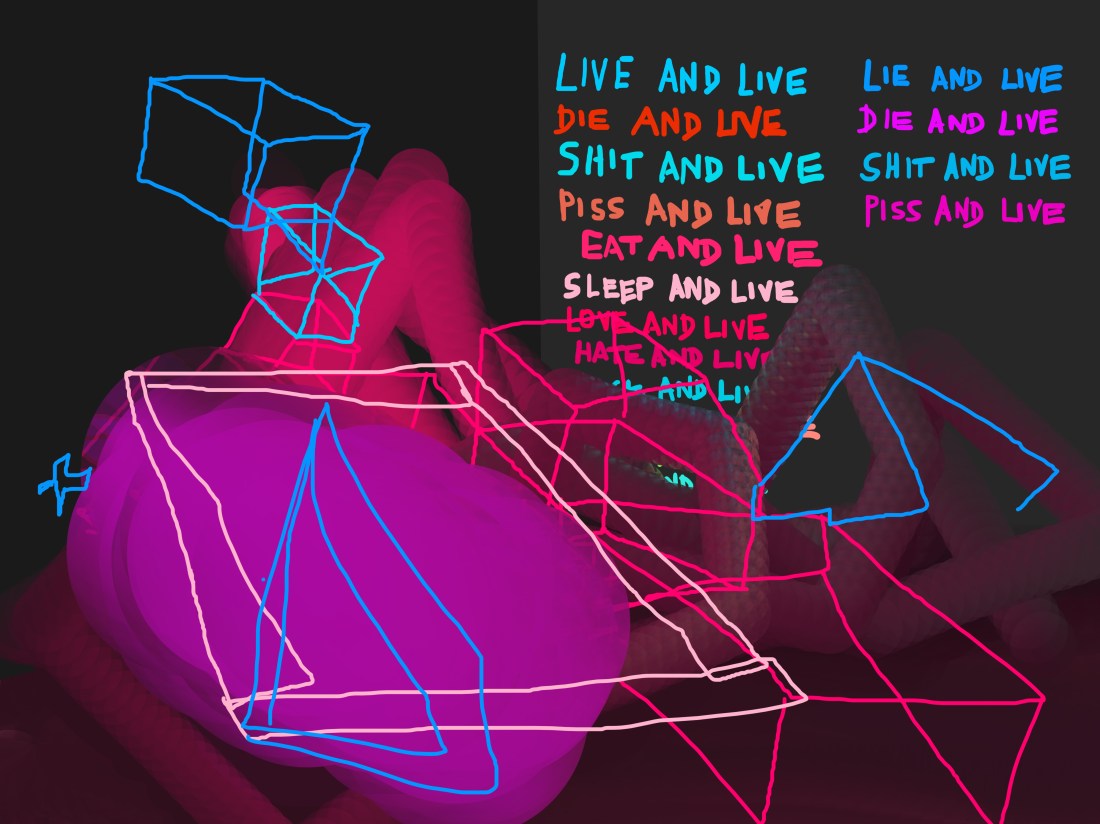 LIVE AND LIVE
DIE AND LIVE
SHIT AND LIVE
PISS AND LIVE
EAT AND LIVE
SLEEP AND LIVE
LOVE AND LIVE
HATE AND LIVE
AND LIV
ND
LIE AND LIVE
DIE AND LIVE
SHIT AND LIVE
PISS AND LIVE